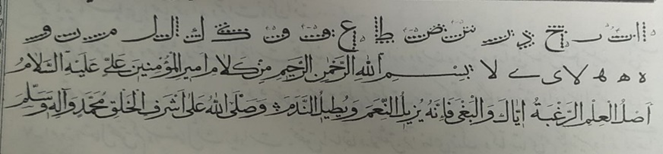 ا ب ت ر ج د ر س ص ط ع ف ق ك ل م ن و
ه ه ه لا ى ے لا بسم الله الرحمن الرحيم من كلام امير المؤمنين على عليه السلام
اصل العلم الرغبة اياك والبغى فانه يزيل النعم ويطيل الندم وصلى الله على اشرف الخلق محمد وآله وسلم